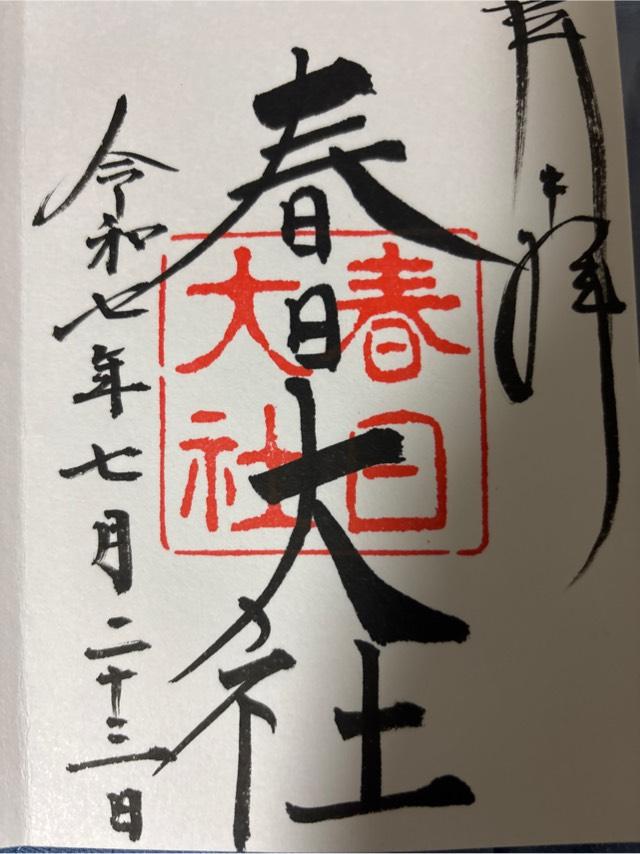 奉拝
春日大社
春日
大社
令和七年七月二十三日